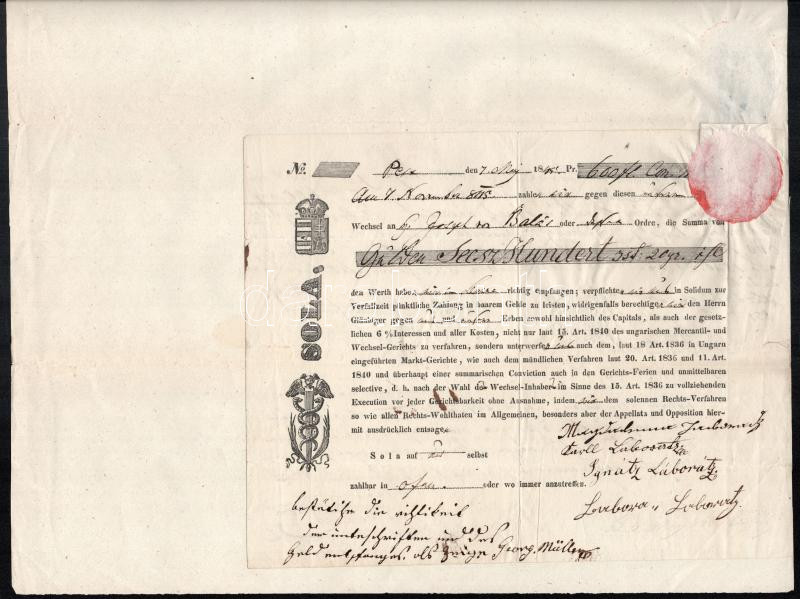 No. Pest den 7. May 184 Pr. 600 fl. Con.
Am 7. November zahle gegen diesen
Wechsel an H. Joseph von Balás oder Ordre, die Summa von
Gulden Sechs Hundert
den Werth habe richtig empfangen; verpflichte in Solidum zur
Verfallzeit pünktliche Zahlung in baarem Gelde zu leisten, widrigenfalls berechtige den Herrn
Gläubiger gegen und Erben sowohl hinsichtlich des Capitals, als auch der gesetz-
lichen 6 % Interessen und aller Kosten, nicht nur laut 15. Art. 1840 des ungarischen Mercantil- und
Wechsel-Gerichts zu verfahren, sondern unterwerfe auch dem, laut 18 Art. 1836 in Ungarn
eingeführten Markt-Gerichte, wie auch dem mündlichen Verfahren laut 20. Art. 1836 und 11. Art.
1840 und überhaupt einer summarischen Conviction auch in den Gerichts-Ferien und unmittelbaren
selective, d. h. nach der Wahl des Wechsel-Inhabers im Sinne des 15. Art. 1836 zu vollziehenden
Execution vor jeder Gerichtsbarkeit ohne Ausnahme, indem dem solennen Rechts-Verfahren
so wie allen Rechts-Wohlthaten im Allgemeinen, besonders aber der Appellata und Opposition hier-
mit ausdrücklich entsage.
SOLA.
Sola auf selbst
Karll Laboratz
Ignátz Láboratz
zahlbar in Ofen. oder wo immer anzutreffen.
Labora Laboratz.
bestätiche die richtikeit
der unteschriften und des
Geld entpfanges als Zeuge Georg Müller